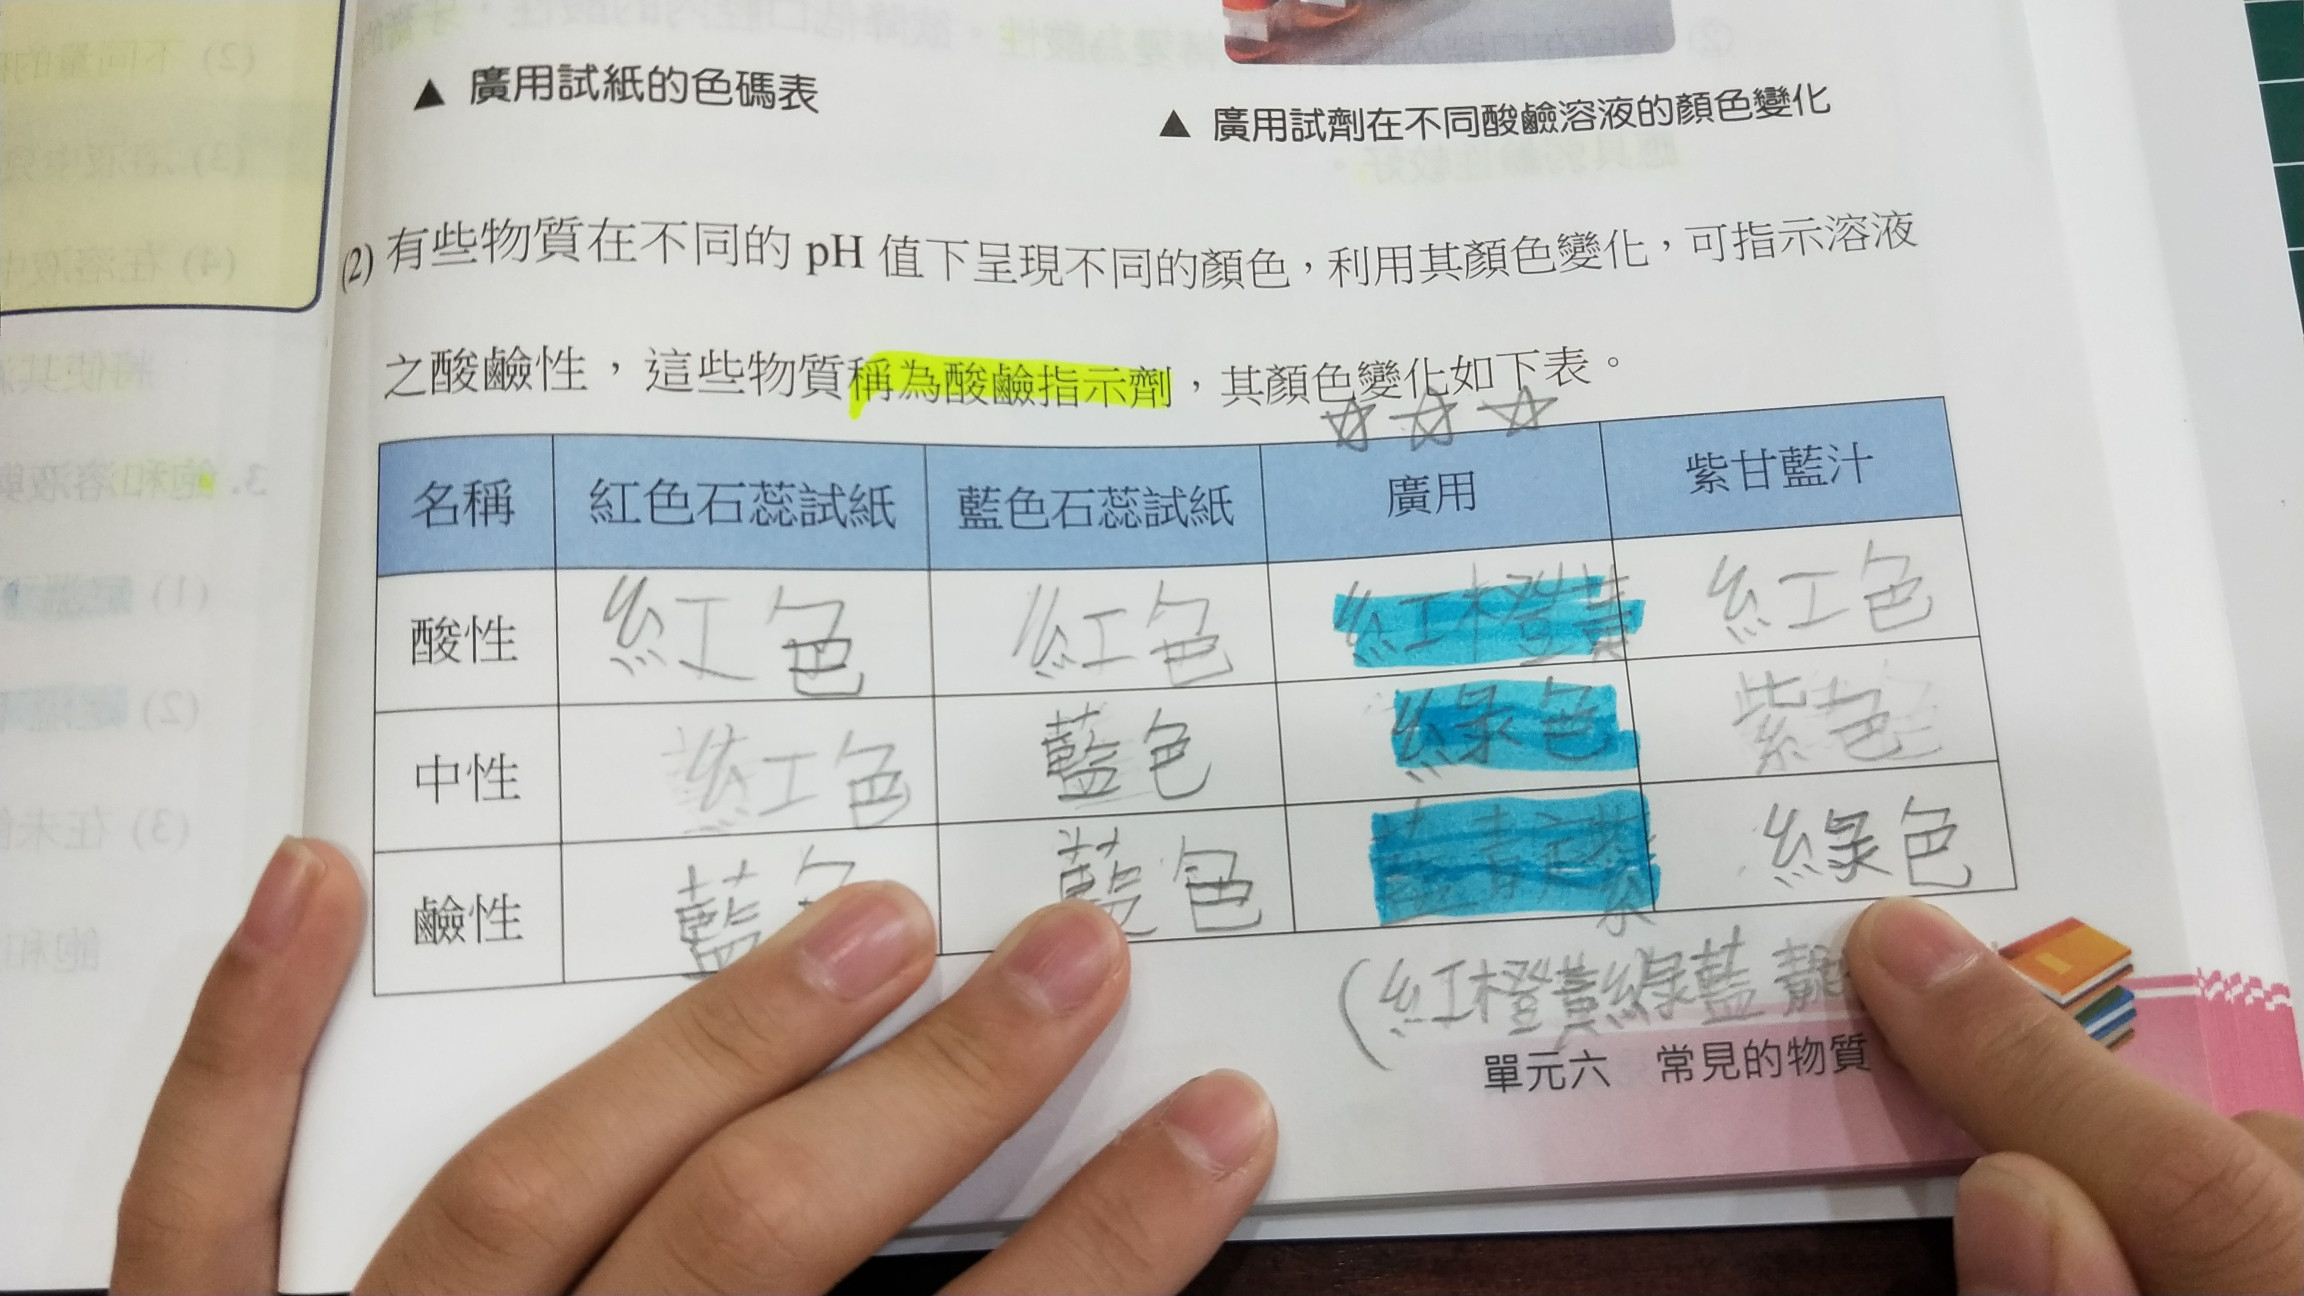 ▲ 廣用試紙的色碼表
▲ 廣用試劑在不同酸鹼溶液的顏色變化
(2) 有些物質在不同的 pH 值下呈現不同的顏色，利用其顏色變化，可指示溶液
之酸鹼性，這些物質稱為酸鹼指示劑，其顏色變化如下表。
☆☆☆
名稱 紅色石蕊試紙 藍色石蕊試紙 廣用 紫甘藍汁
酸性 紅色 紅色 紅橙黃 紅色
中性 紅色 藍色 綠色 紫色
鹼性 藍色 藍色 藍靛紫 綠色
(紅橙黃綠藍靛
單元六 常見的物質